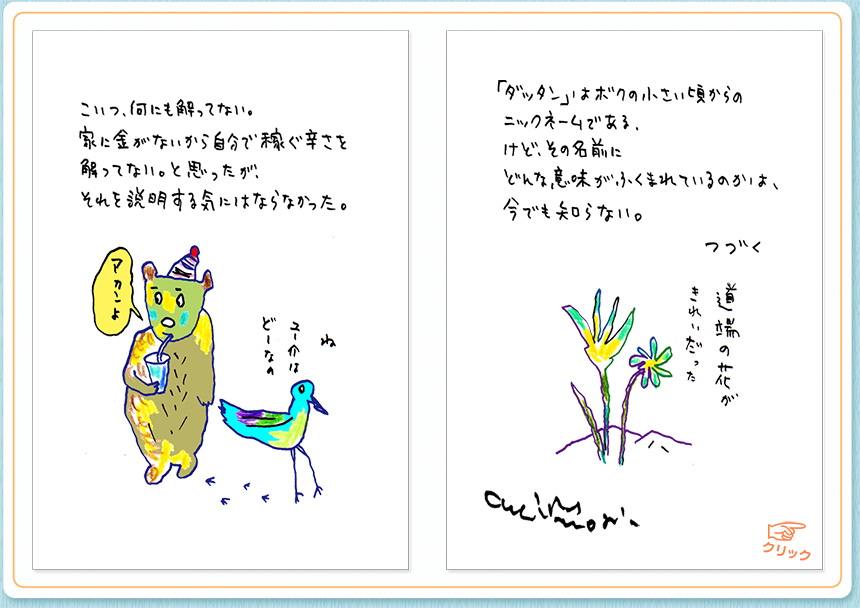 こいつ、何にも解ってない。
家に金がないから自分で稼ぐ辛さを
解ってない。と思ったが、
それを説明する気にはならなかった。
アカンよ
ね
ユー介は
どーなの
「ダッタン」はボクの小さい頃からの
ニックネームである、
けど、その名前に
どんな意味がふくまれているのかは、
今でも知らない。
つづく
道端の花が
きれいだった
クリック